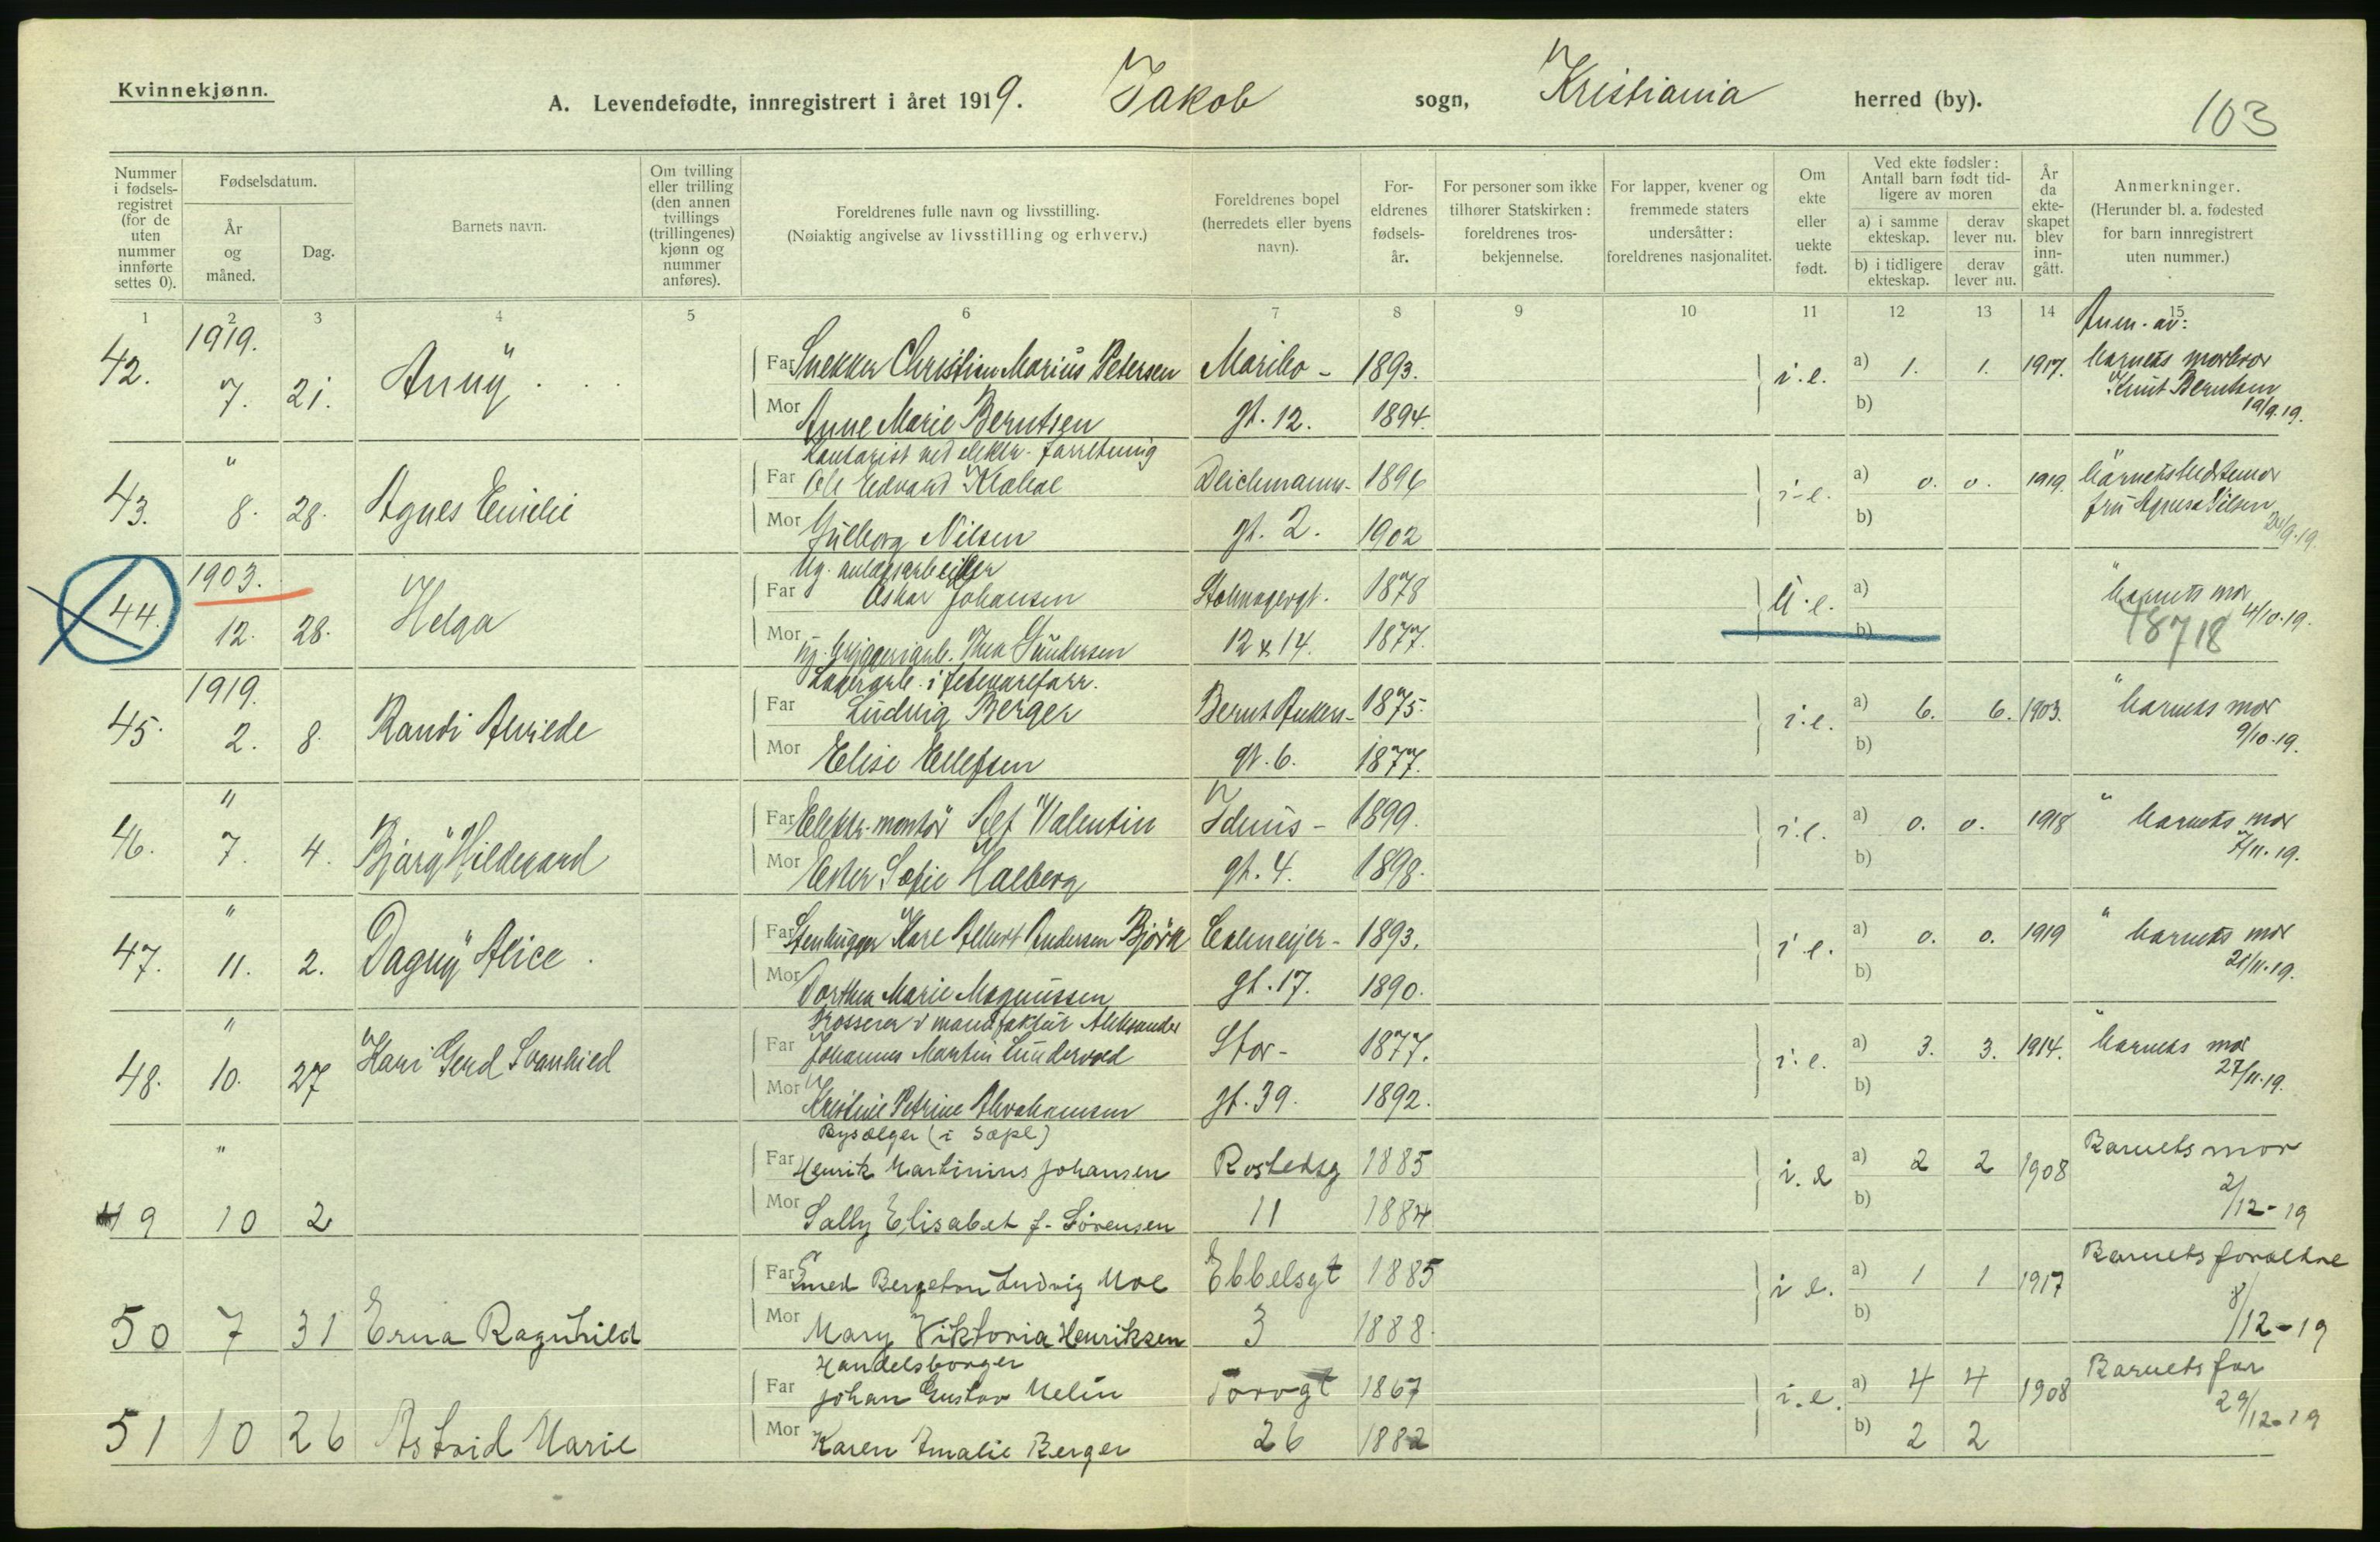 Kvinnekjønn.
A. Levendefødte, innregistrert i året 1919. Jakob sogn, Kristiania herred (by).
103
Nummer i fødselsregistret (for de uten nummer innførte settes 0).
Fødselsdatum.
År og måned.
Dag.
Barnets navn.
Om tvilling eller trilling (den annen tvillings (trillingenes) kjønn og nummer anføres).
Foreldrenes fulle navn og livsstilling.
(Nøiaktig angivelse av livsstilling og erhverv.)
Foreldrenes bopel (herredets eller byens navn).
Foreldrenes fødselsår.
For personer som ikke tilhører Statskirken: foreldrenes trosbekjennelse.
For lapper, kvener og fremmede staters undersåtter: foreldrenes nasjonalitet.
Om ekte eller uekte født.
Ved ekte fødsler: Antall barn født tidligere av moren
a) i samme ekteskap.
derav lever nu.
b) i tidligere ekteskap.
derav lever nu.
År da ekteskapet blev inngått.
Anmerkninger.
(Herunder bl. a. fødested for barn innregistrert uten nummer.)
1 2 3 4 5 6 7 8 9 10 11 12 13 14 15
1919. Anm. av:
42. 7. 21. Anny Far Snekker Christian Marius Petersen Maribo- 1893. i.e. a) 1. 1. 1917. barnets morbror
Knut Berntsen
Mor Anne Marie Berntsen gt. 12. 1894. b) 19/9.19.
Kontorist ved elektr. forretning
43. " 8. 28. Agnes Emilie Far Ole Edvard Deichmanns- 1896 i.e. a) 0. 0. 1919. barnets bedstemor
fru Agnes Nilsen
Mor Gulborg Nilsen gt. 2. 1902 b) 24/9.19.
Ug. anlægsarbeider
44. 1903. 12. 28. Helga Far Oskar Johansen Stolmagergt. 1878 U.e. a) " barnets mor
4/10.19.
Mor Thea Gundersen 12 & 14. 1877. b) 18718
Lagerarb. i fetevareforr.
1919.
45. 2. 8. Randi Alvilde Far Ludvig Berger Bernt Ankers- 1875. i.e. a) 6. 6. 1903. " barnets mor
Mor Elise Ellefsen gt. 6. 1877. b) 9/10.19.
46. " 7. 4. Bjarg Hildegard Far Elektr. montør Alf Valentin Iduns- 1899. i.e. a) 0. 0. 1918 " barnets mor
Mor Ester Sofie Halberg gt. 4. 1898. b) 7/11.19.
47. " 11. 2. Dagny Alice. Far Stenhugger Karl Albert Andersen Björk Calmeyer- 1893. i.e. a) 0. 0. 1919 " barnets mor
Mor Dorthea Marie Magnussen gt. 17. 1890. b) 21/11.19.
Grosserer i manufaktur Aleksander
48. " 10. 27 Kari Gerd Svanhild Far Johannes Martin Stor- 1877. i.e. a) 3. 3. 1914. " barnets mor
Mor Kristine Petrine Abrahamsen gt. 39. 1892. b) 27/11.19.
Bysælger (i Sæpe)
" Far Henrik Martinius Johansen Rostedsg 1885 i.e a) 2 2 1908 Barnets mor
49 10 2 Mor Sally Elisabet f. Sørensen 11 1884 b) 2/12-19
Far Smed Bergeton Ludvig Moe Ebbelsgt 1885 i e. a) 1 1 1917 Barnets forældre
50 7 31 Erna Ragnhild Mor Mary Viktoria Henriksen 3 1888. b) 8/12-19
Handelsborger
Far Johan Gustav Melin Torvgt 1867 i.e. a) 4 4 1908 Barnets far
51 10 26 Astrid Marie Mor Karen Amalie Berger 26 1882 b) 2 2 29/12-19